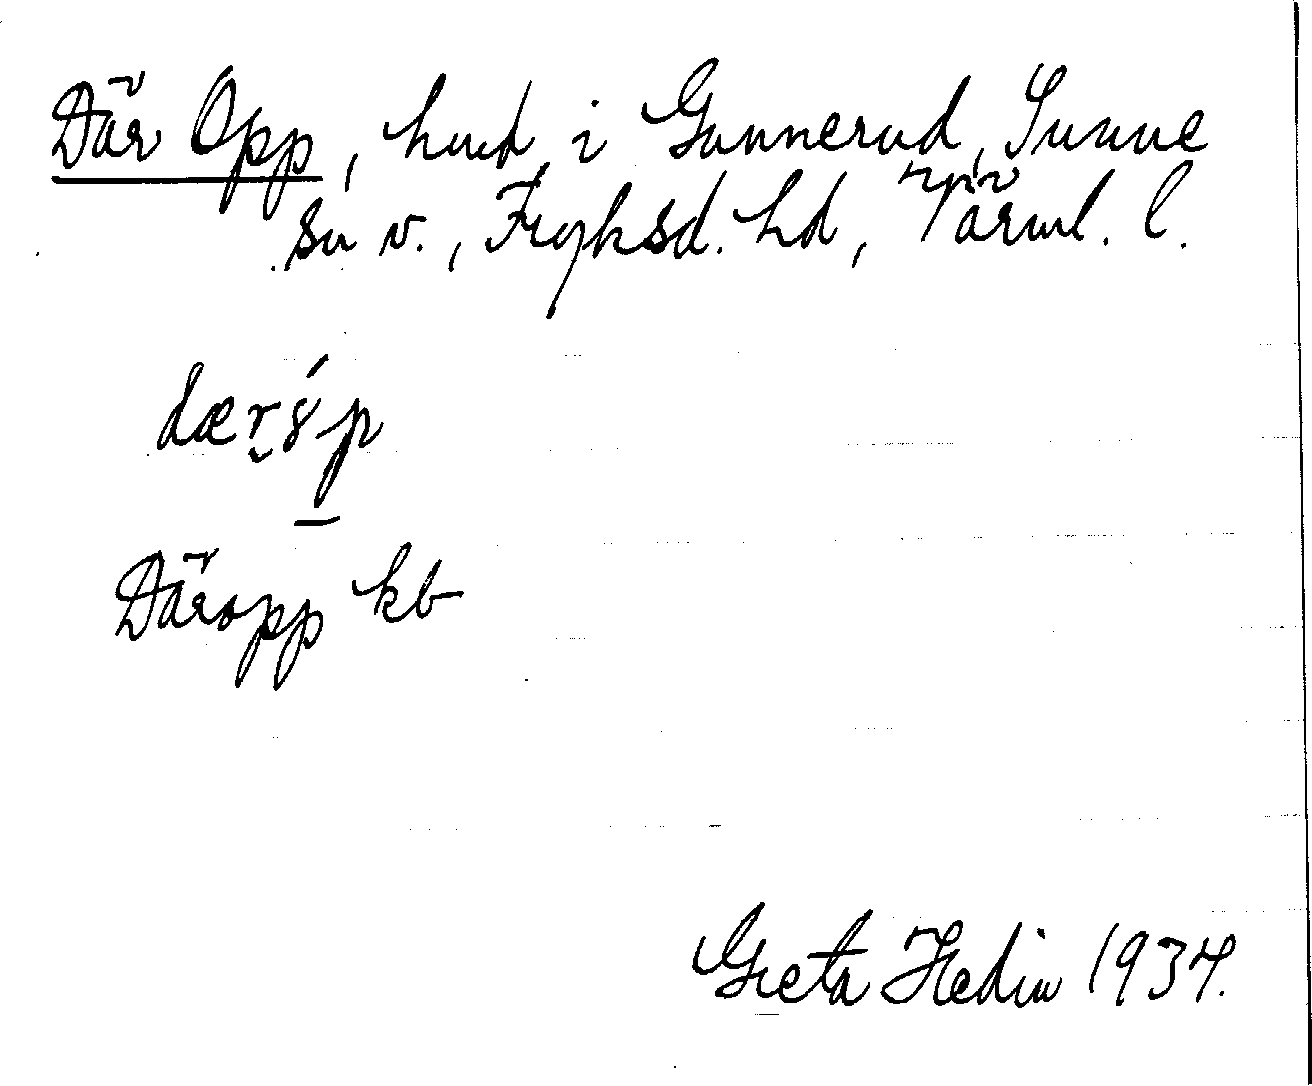 Där Opp, hmd i Gunnerud, Sunne
sn v., Fryksd. hd, Värml. l.
Däropp kb
Greta Hedin 1934.